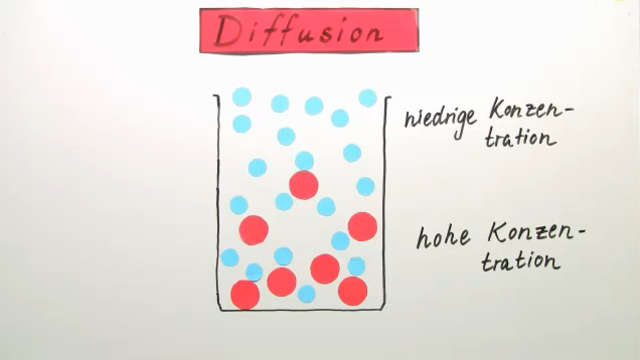 Diffusion
niedrige Konzen-
tration
hohe Konzen-
tration